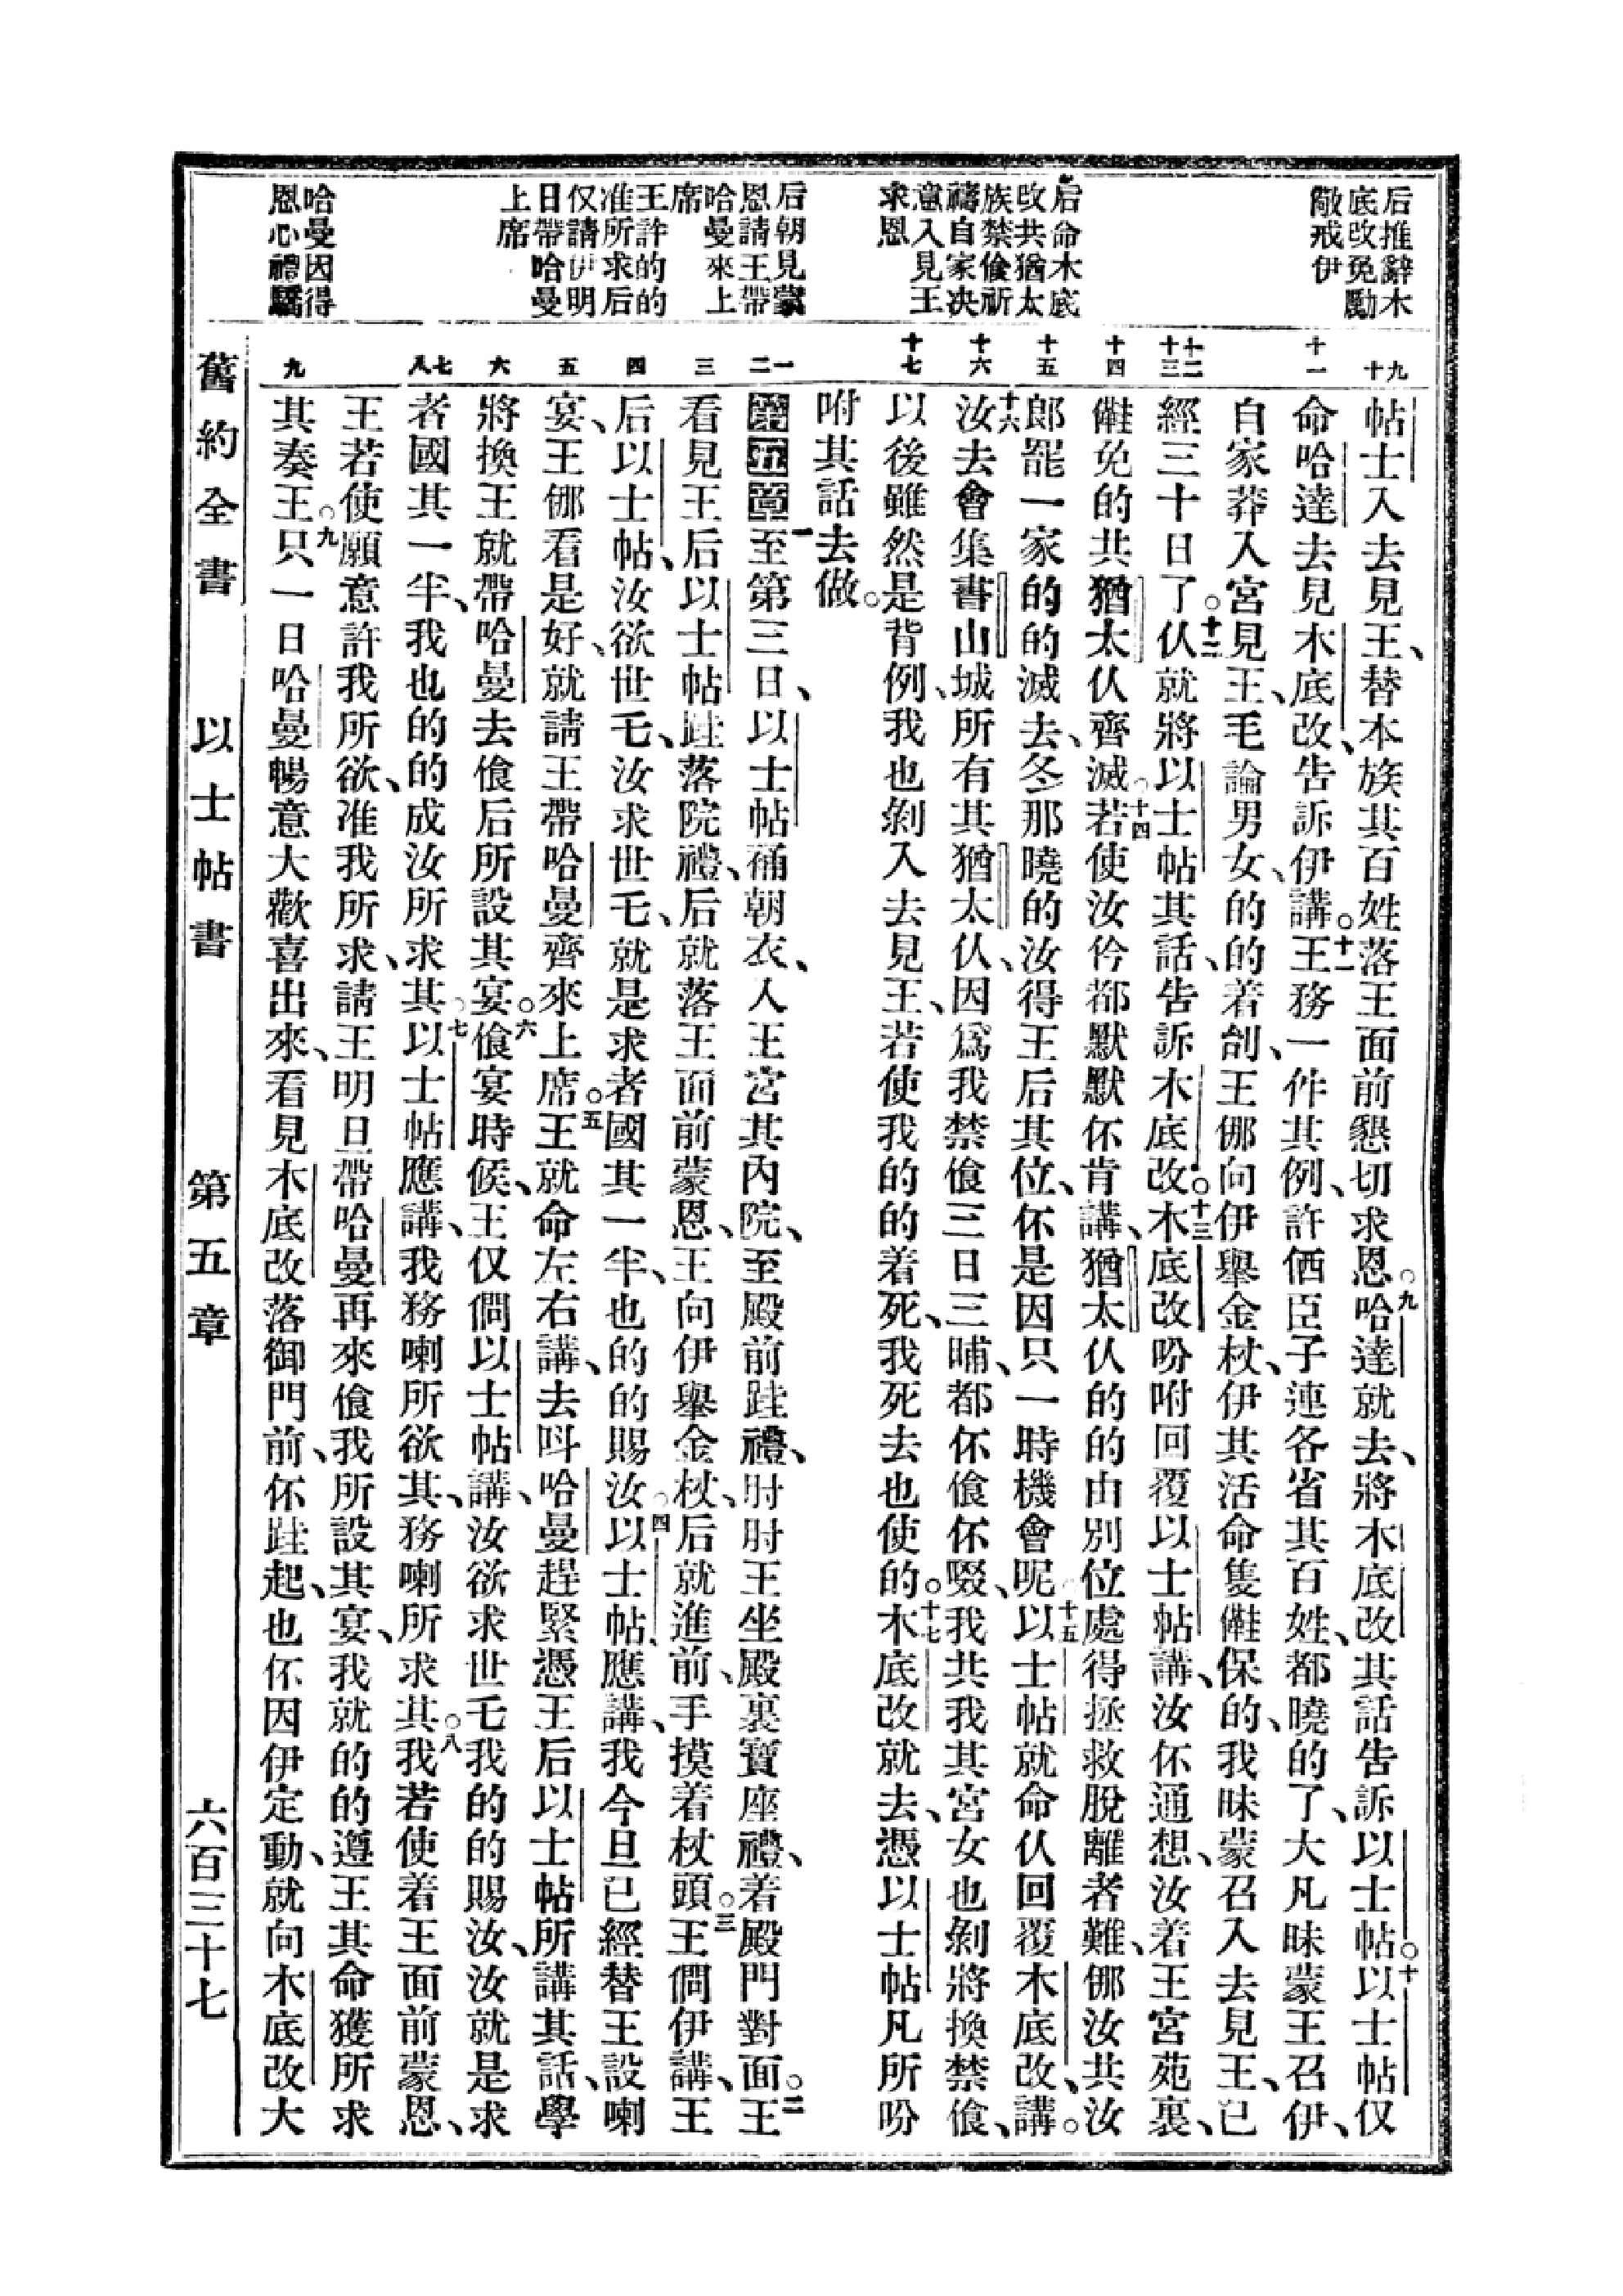 后推辭木
底改免勵
敵戒伊
后命木底
改共猶太
族禁飱祈
禱自家决
意入見王
求恩
后朝見蒙
恩請王帶
哈曼來上
席
王許的的
准所求后
仅請伊明
日帶哈曼
上席
哈曼因得
恩心禮驕
九
十
十一
十二
十三
十四
十五
十六
十七
一
二
三
四
五
六
七
八
九
帖士入去見王、替本族其百姓落王面前懇切求恩。九哈達就去、將木底改其話告訴以士帖。十以士帖仅
命哈達去見木底改、告訴伊講。十一王務一件其例、許伓臣子連各省其百姓、都曉的了、大凡昧蒙王召伊、
自家莽入宮見王、乇論男女、的的着刣、王㑚向伊舉金杖、伊其活命隻㒕保的、我昧蒙召入去見王、已
經三十日了。十二仈就將以士帖其話、告訴木底改。十三木底改吩咐回覆以士帖講、汝伓通想、汝着王宮苑裏、
㒕免的共猶太仈齊滅。十四若使汝仱都默默伓肯講、猶太仈的的由別位處得拯救脫離者難、㑚汝共汝
郎罷一家的的滅去、冬那曉的汝得王后其位、伓是因只一時機會呢。十五以士帖就命仈回覆木底改、講。
十六汝去會集書山城所有其猶太仈、因爲我禁飱三日三晡、都伓飱伓啜、我共我其宮女也剝將換禁飱、
以後雖然是背例、我也剝入去見王、若使我的的着死、我死去也使的。十七木底改就去、憑以士帖凡所吩
咐其話去做。
第五章一至第三日、以士帖䘄朝衣、入王宮其內院、至殿前跬禮、肘肘王坐殿裏寶座禮、着殿門對面。二王
看見王后以士帖、跬落院禮、后就落王面前蒙恩、王向伊舉金杖、后就進前、手摸着杖頭。三王僩伊講、王
后以士帖、汝欲世乇、汝求世乇、就是求者國其一半、也的的賜汝。四以士帖應講、我今旦已經替王設喇
宴、王㑚看是好、就請王帶哈曼齊來上席。五王就命左右講、去呌哈曼趕緊憑王后以士帖所講其話、學
將換王就帶哈曼去飱后所設其宴。六飱宴時候、王仅僩以士帖講、汝欲求世乇我的的賜汝、汝就是求
者國其一半、我也的的成汝所求其。七以士帖應講、我務喇所欲其、務喇所求其。八我若使着王面前蒙恩、
王若使願意許我所欲、准我所求、請王明旦帶哈曼再來飱我所設其宴、我就的的遵王其命獲所求
其奏王。九只一日哈曼暢意大歡喜出來、看見木底改落御門前、伓跬起、也伓因伊定動、就向木底改大
舊約全書　以士帖書　第五章　六百三十七